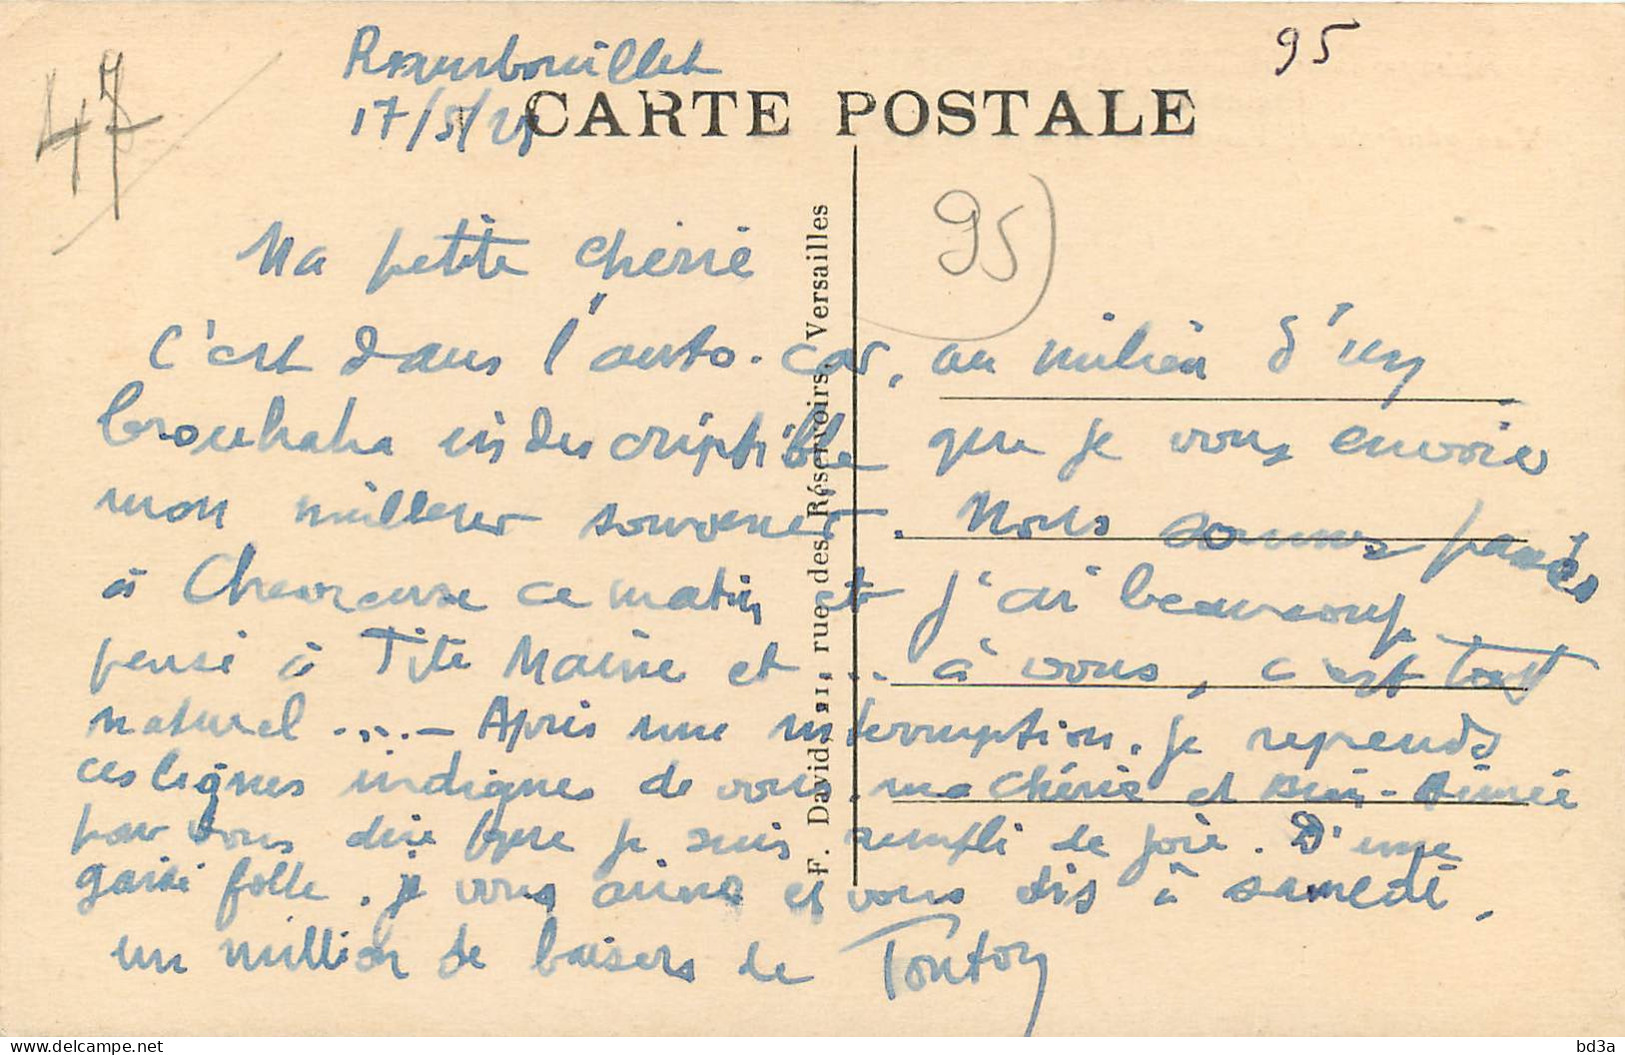 95
47
Rambouillet
17/5/25
CARTE POSTALE
95
Ma petite chérie
C'est dans l'auto-car, au milieu d'un
brouhaha indescriptible que je vous envoie
mon meilleur souvenir. Nous sommes passés
à Chevreuse ce matin et j'ai beaucoup
pensé à Tite Maine et ... à vous, c'est tout
naturel ....— Après une interruption, je reprends
ces lignes indignes de vous, ma Chérie et Bien-Aimée
pour vous dire que je suis rempli de joie. D'une
gaité folle, je vous aime et vous dis à samedi,
un million de baisers de Tonton
F. David, 21, rue des Réservoirs, Versailles
bd3a